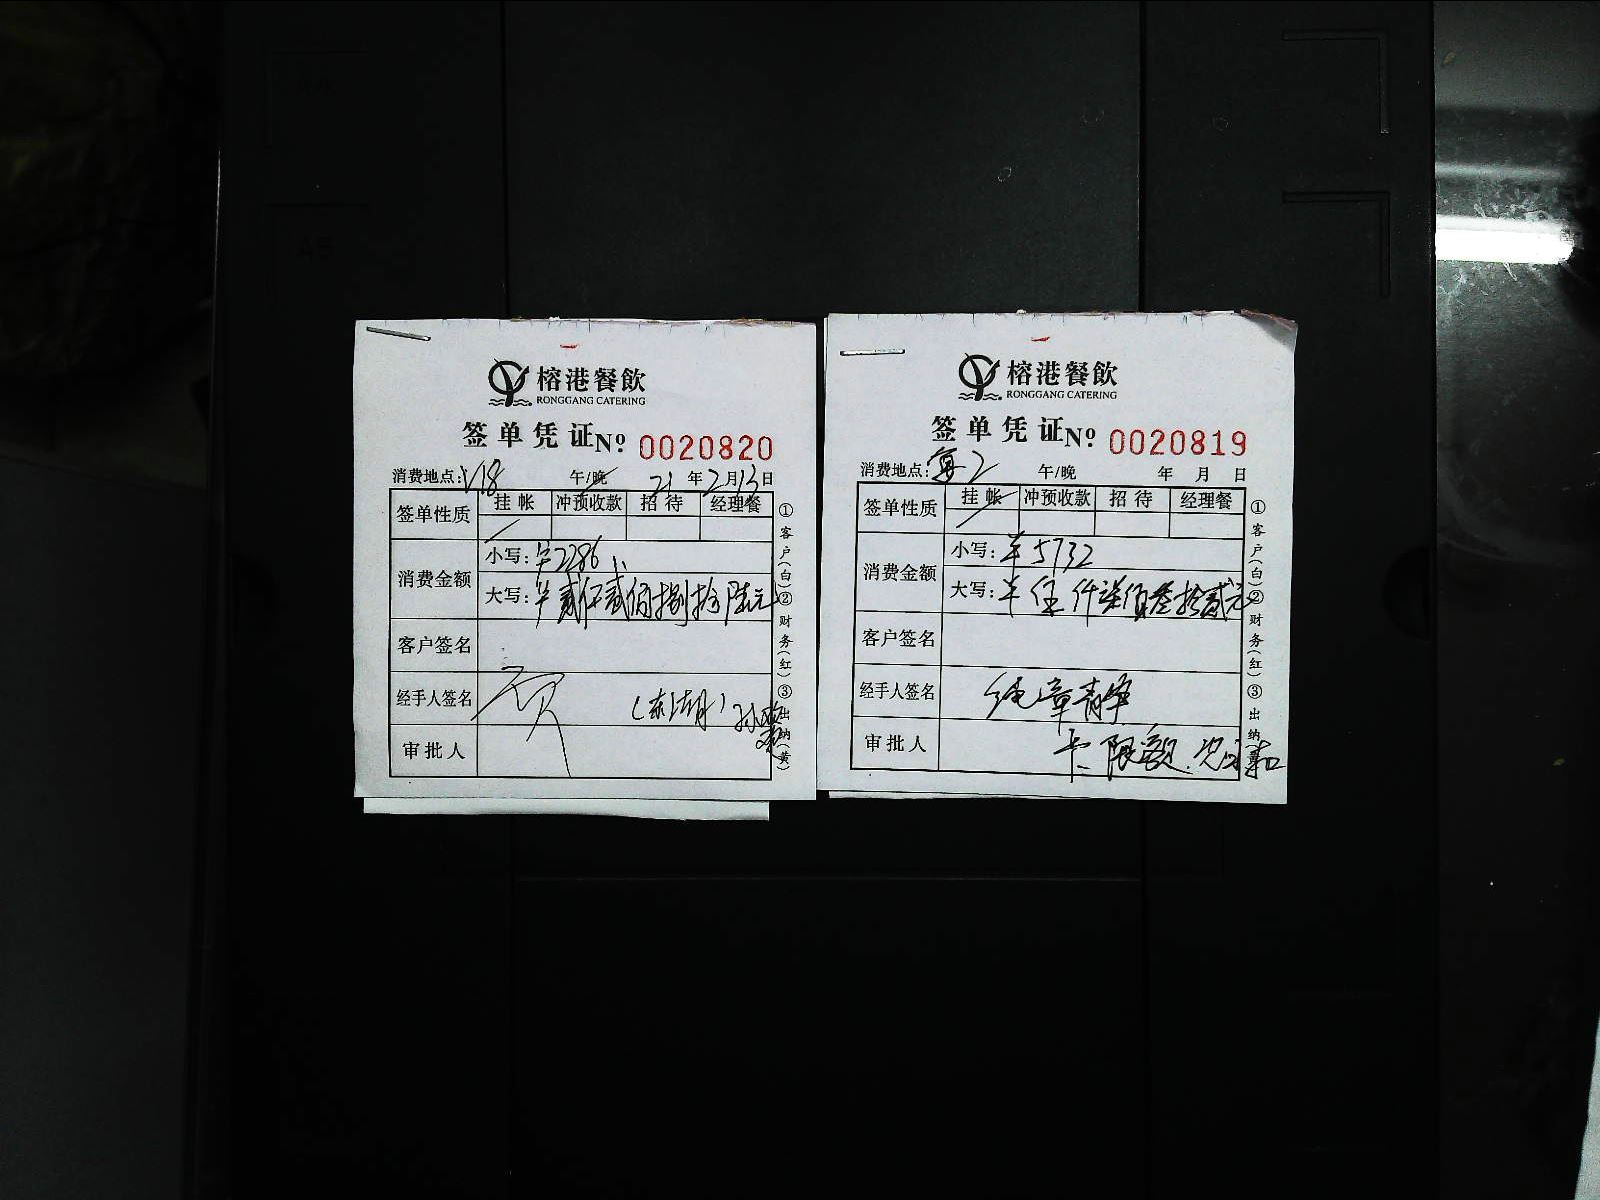 榕港餐飲
RONGGANG CATERING
签单凭证 № 0020820
消费地点: V18 午/晚 21年2月13日
签单性质 挂帐 冲预收款 招待 经理餐
消费金额
小写: ¥2286
大写: ¥贰仟贰佰捌拾陆元
客户签名
经手人签名 (东湖)
审批人
①客户(白)②财务(红)③出纳(黄)
榕港餐飲
RONGGANG CATERING
签单凭证 № 0020819
消费地点: 2 午/晚 年 月 日
签单性质 挂帐 冲预收款 招待 经理餐
消费金额
小写: ¥5732
大写: ¥伍仟柒佰叁拾贰元
客户签名
经手人签名 章青
审批人 卡限额
①客户(白)②财务(红)③出纳(黄)